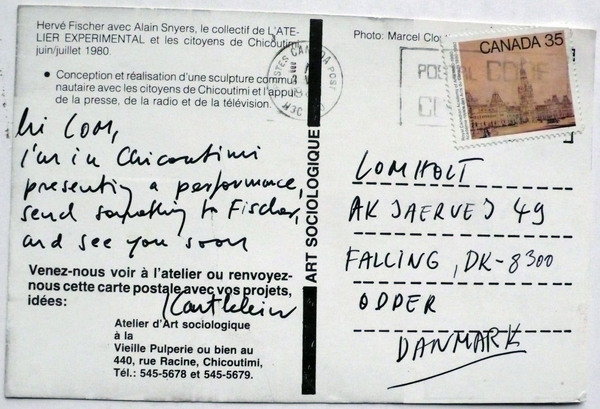 Hervé Fischer avec Alain Snyers, le collectif de L'ATE-
LIER EXPERIMENTAL et les citoyens de Chicoutimi
juin/juillet 1980.
• Conception et réalisation d'une sculpture commu
nautaire avec les citoyens de Chicoutimi et l'appui
de la presse, de la radio et de la télévision.
Hi LOM,
I'm in Chicoutimi
presenting a performance,
send something to Fischer,
and see you soon
Venez-nous voir à l'atelier ou renvoyez-
nous cette carte postale avec vos projets,
idées:
Atelier d'Art sociologique
à la
Vieille Pulperie ou bien au
440, rue Racine, Chicoutimi,
Tél.: 545-5678 et 545-5679.
ART SOCIOLOGIQUE
Photo: Marcel
CANADA 35
CANADA POST
POSTAL CODE
LOMHOLT
AKJAERVEJ 49
FALLING, DK-8300
ODDER
DANMARK